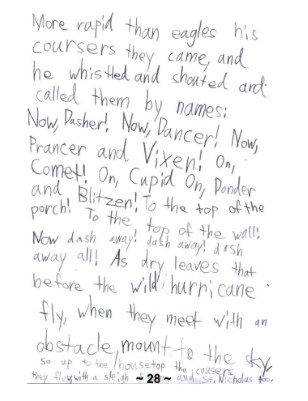 More rapid than eagles his
coursers they came, and
he whistled and shouted and
called them by names:
Now, Dasher! Now, Dancer! Now,
Prancer and Vixen! On,
Comet! On, Cupid On, Donder
and Blitzen! To the top of the
porch! To the top of the wall!
Now dash away! dash away! dash
away all! As dry leaves that
before the wild hurricane
fly, when they meet with an
obstacle, mount to the sky,
So up to the housetop the coursers
they flew with a sleigh ~ 28 ~ and St. Nicholas too.